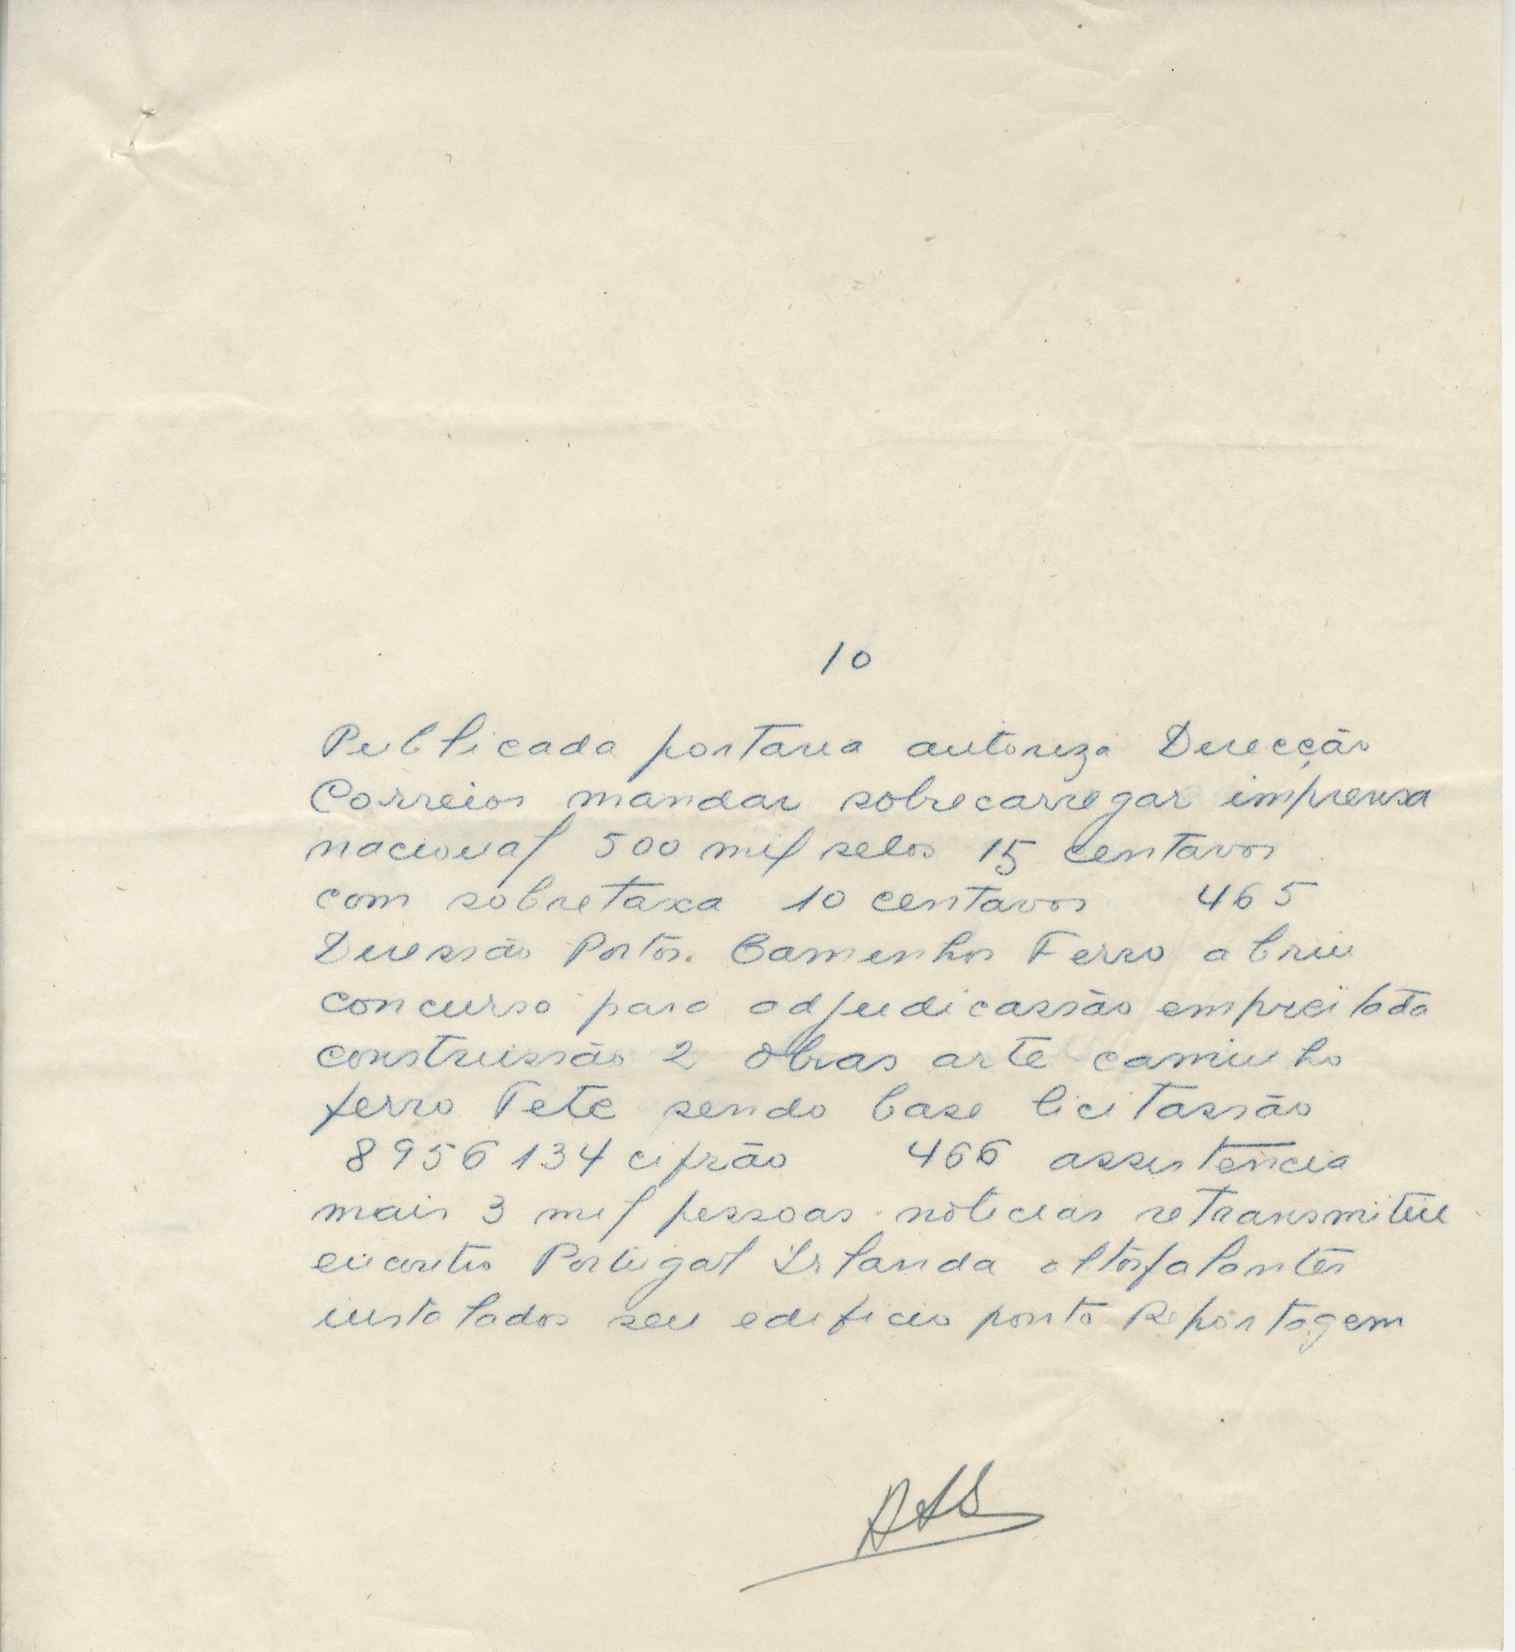 10
Publicada portaria autoriza Direcção
Correios mandar sobrecarregar imprensa
nacional 500 mil selos 15 centavos
com sobretaxa 10 centavos 465
Diressão Portos. Caminhos Ferro abriu
concurso para adjudicassão empreitada
construssão 2 obras arte caminho
ferro Tete sendo base licitassão
8956134 cifrão 466 assistência
mais 3 mil pessoas noticias retransmitiu
encontro Portugal Irlanda altosfalantes
instalados seu edificio ponto Reportagem